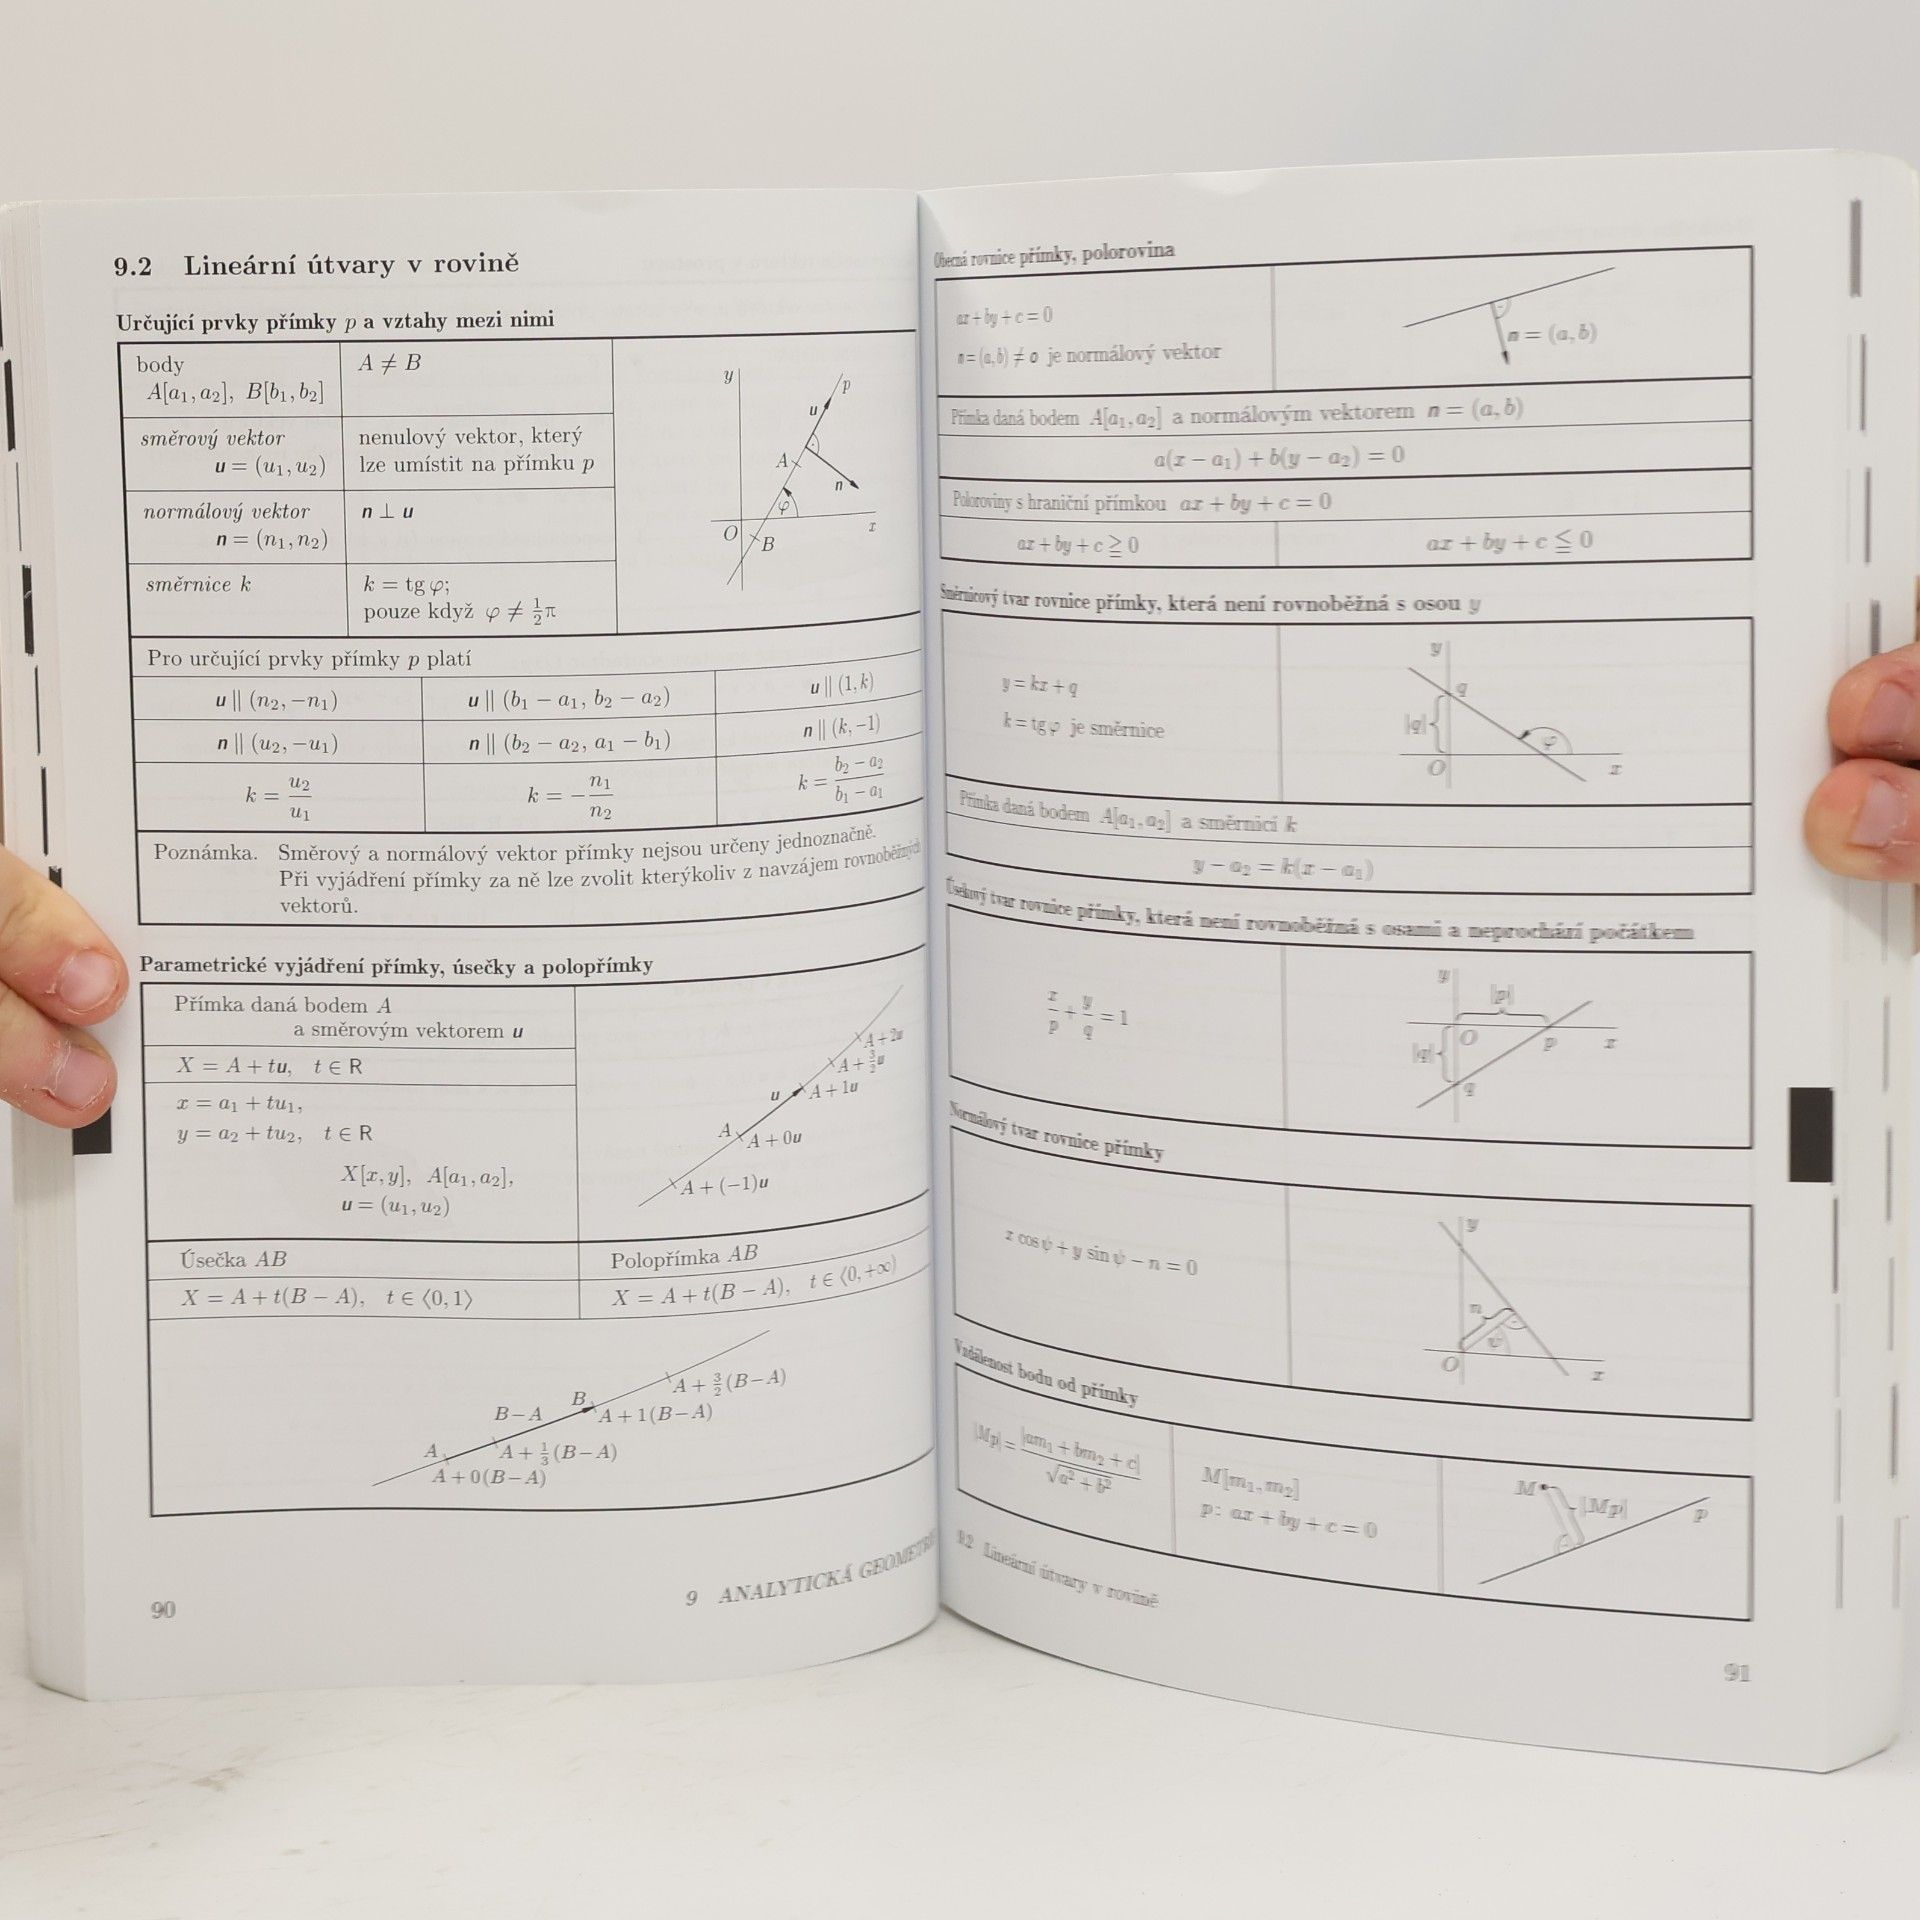 9.2 Lineární útvary v rovině
Určující prvky přímky p a vztahy mezi nimi
body
A[a₁, a₂], B[b₁, b₂]
A ≠ B
směrový vektor
u = (u₁, u₂)
nenulový vektor, který
lze umístit na přímku p
normálový vektor
n = (n₁, n₂)
n ⊥ u
směrnice k
k = tg φ;
pouze když φ ≠ ½π
y
p
u
A
n
φ
O
B
x
Pro určující prvky přímky p platí
u ∥ (n₂, −n₁)
u ∥ (b₁ − a₁, b₂ − a₂)
u ∥ (1, k)
n ∥ (u₂, −u₁)
n ∥ (b₂ − a₂, a₁ − b₁)
n ∥ (k, −1)
k = u₂/u₁
k = −n₁/n₂
k = (b₂ − a₂)/(b₁ − a₁)
Poznámka. Směrový a normálový vektor přímky nejsou určeny jednoznačně.
Při vyjádření přímky za ně lze zvolit kterýkoliv z navzájem rovnoběžných
vektorů.
Parametrické vyjádření přímky, úsečky a polopřímky
Přímka daná bodem A
a směrovým vektorem u
X = A + tu, t ∈ R
x = a₁ + tu₁,
y = a₂ + tu₂, t ∈ R
X[x, y], A[a₁, a₂],
u = (u₁, u₂)
A + 2u
A + 3/2 u
u
A + 1u
A
A + 0u
A + (−1)u
Úsečka AB
Polopřímka AB
X = A + t(B − A), t ∈ ⟨0, 1⟩
X = A + t(B − A), t ∈ ⟨0, +∞)
A + 3/2 (B−A)
B
B−A
A + 1(B−A)
A
A + 1/3 (B−A)
A + 0(B−A)
90
9 ANALYTICKÁ GEOMETRI
Obecná rovnice přímky, polorovina
ax + by + c = 0
n = (a, b) ≠ o je normálový vektor
n = (a, b)
Přímka daná bodem A[a₁, a₂] a normálovým vektorem n = (a, b)
a(x − a₁) + b(y − a₂) = 0
Poloroviny s hraniční přímkou ax + by + c = 0
ax + by + c ≧ 0
ax + by + c ≦ 0
Směrnicový tvar rovnice přímky, která není rovnoběžná s osou y
y = kx + q
k = tg φ je směrnice
y
q
|q|
φ
O
x
Přímka daná bodem A[a₁, a₂] a směrnicí k
y − a₂ = k(x − a₁)
Úsekový tvar rovnice přímky, která není rovnoběžná s osami a neprochází počátkem
x/p + y/q = 1
y
|p|
O
p
x
|q|
q
Normálový tvar rovnice přímky
x cos ψ + y sin ψ − n = 0
y
n
ψ
O
x
Vzdálenost bodu od přímky
|Mp| = |am₁ + bm₂ + c|/√(a² + b²)
M[m₁, m₂]
p: ax + by + c = 0
M
|Mp|
p
9.2 Lineární útvary v rovině
91